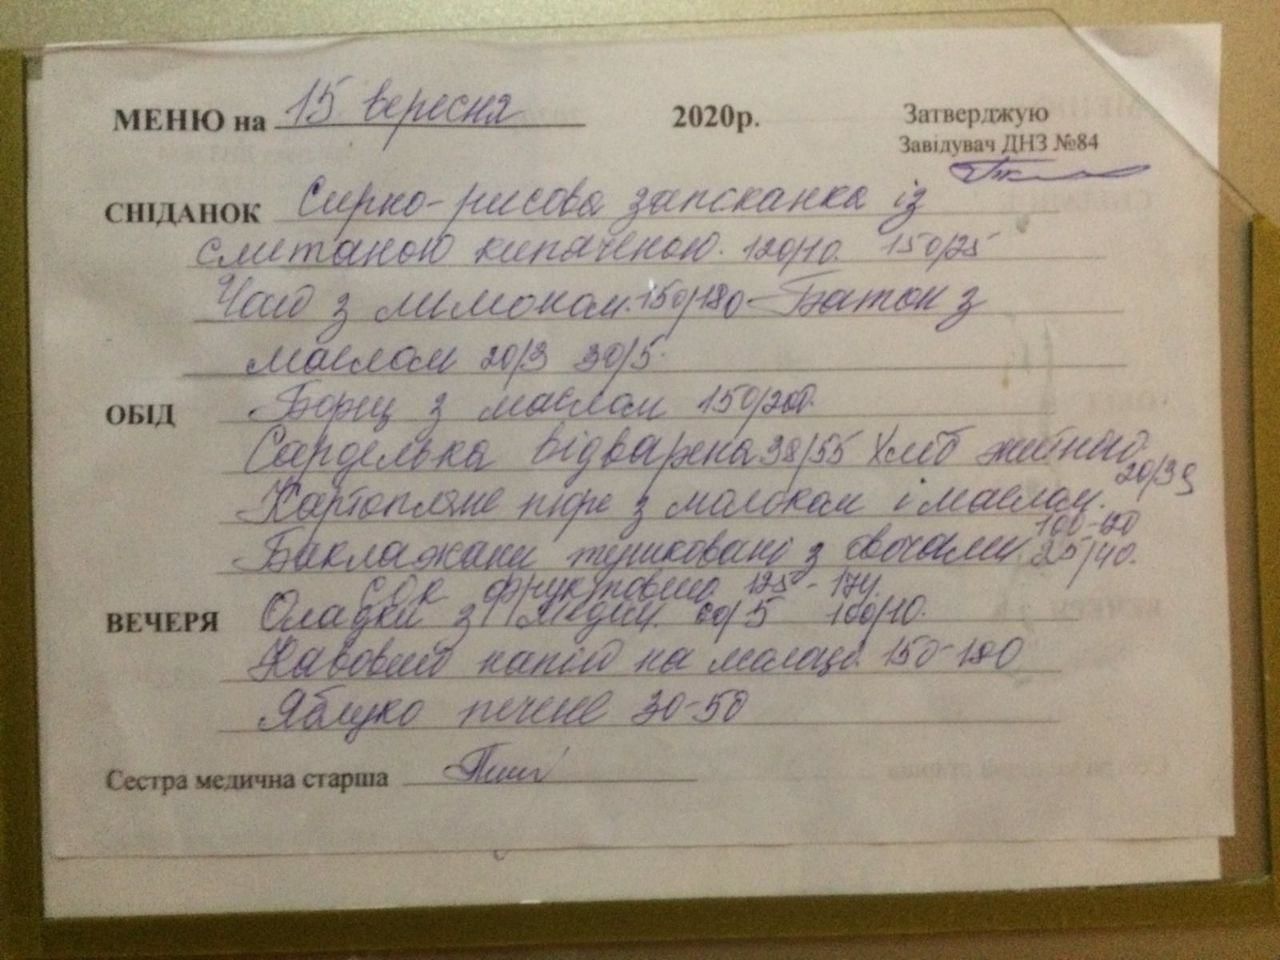 МЕНЮ на 15 вересня 2020р. Затверджую
Завідувач ДНЗ №84
СНІДАНОК Сирно-рисова запеканка із
сметаною кипяченою. 120/10. 150/25
Чай з лимоном. 150/180 Батон з
маслом 20/3 30/5.
ОБІД Борщ з маслом 150/200.
Сарделька відварена 38/55 Хліб житній
20/35
Картопляне пюре з молоком і маслом.
100-120
Баклажани тушковані з овочами 25/40.
Сок фруктовий 125-170.
ВЕЧЕРЯ Оладки з медом. 60/5 100/10.
Кавовий напій на молоці. 150-180
Яблуко печене 30-50
Сестра медична старша